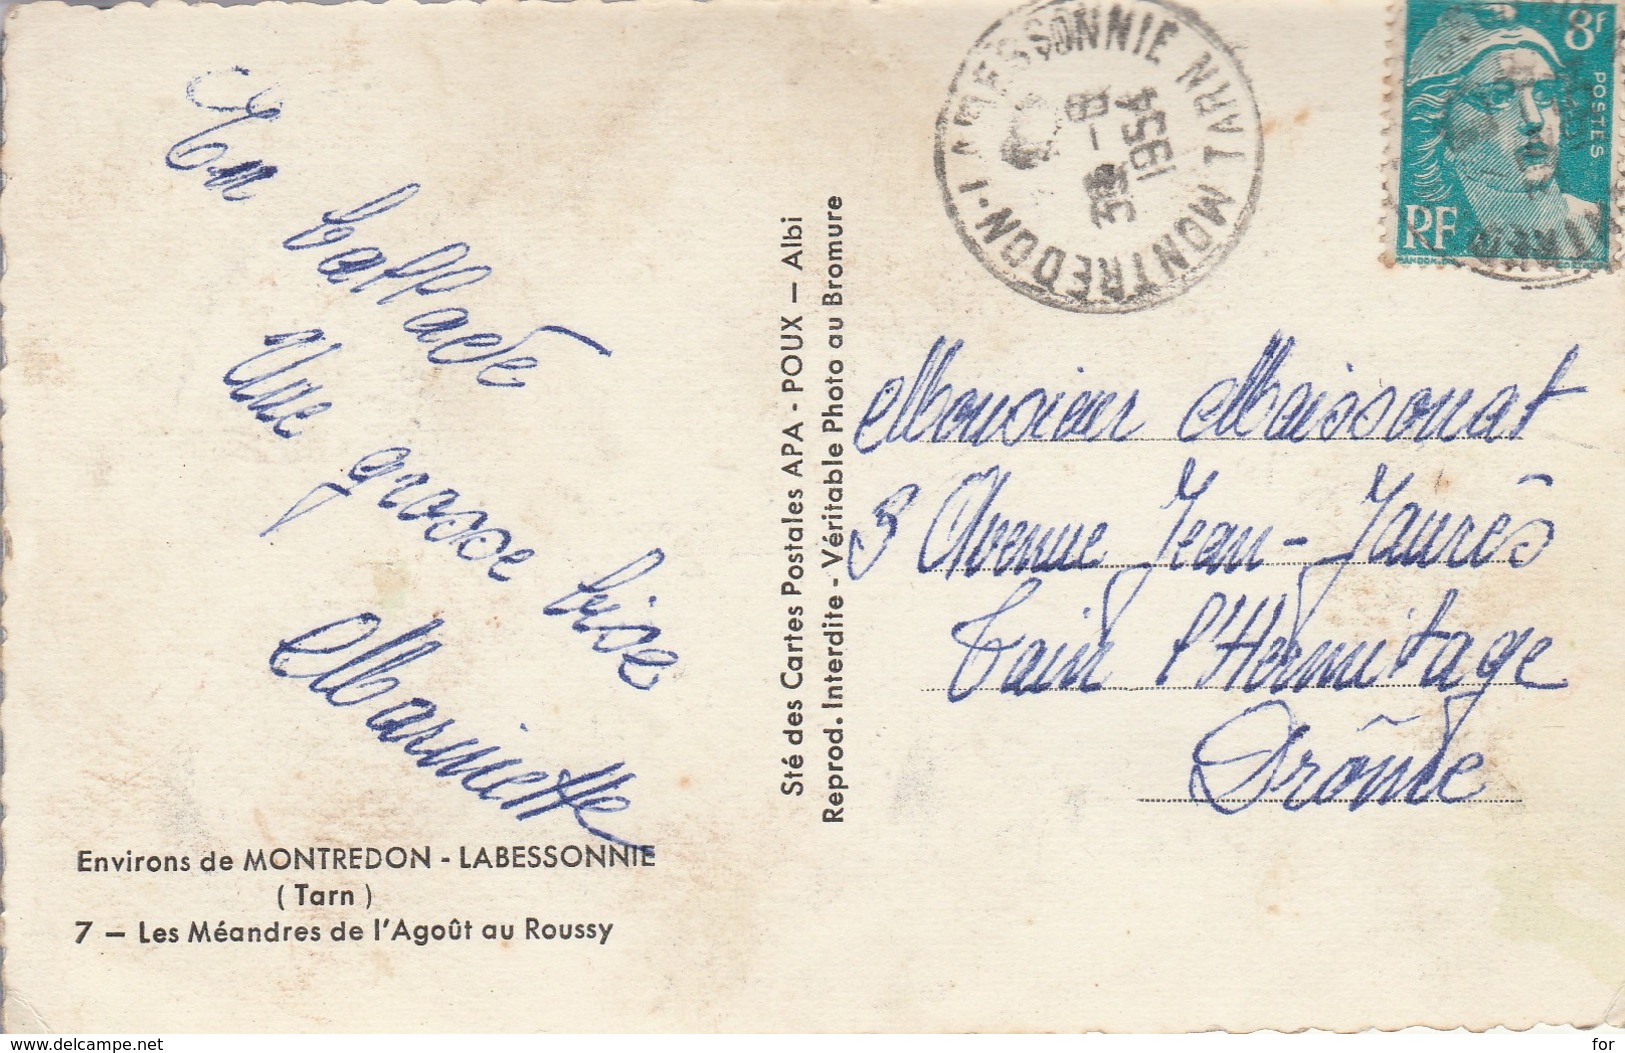 En ballade
Une grosse bise
Marinette
Environs de MONTREDON - LABESSONNIE
( Tarn )
7 — Les Méandres de l'Agoût au Roussy
Sté des Cartes Postales APA - POUX — Albi
Reprod. Interdite - Véritable Photo au Bromure
MONTREDON-LABESSONNIE TARN
-8
1954
8F
POSTES
RF
Monsieur Maissonat
3 Avenue Jean-Jaurès
Tain l'Hermitage
Drôme
www.delcampe.net
for